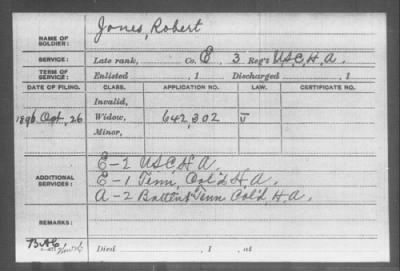 NAME OF SOLDIER: Jones, Robert
SERVICE: Late rank, Co. E 3 Reg't U.S.C.H.A.
TERM OF SERVICE: Enlisted , 1 Discharged , 1
DATE OF FILING. CLASS. APPLICATION NO. LAW. CERTIFICATE NO.
Invalid,
1896 Oct, 26 Widow, 642,302
Minor,
ADDITIONAL SERVICES:
E-1 U.S.C.H.A.
E-1 Tenn, Col'd H.A.
A-2 Battery Tenn Col'd. H.A.
REMARKS:
Died , 1 , at